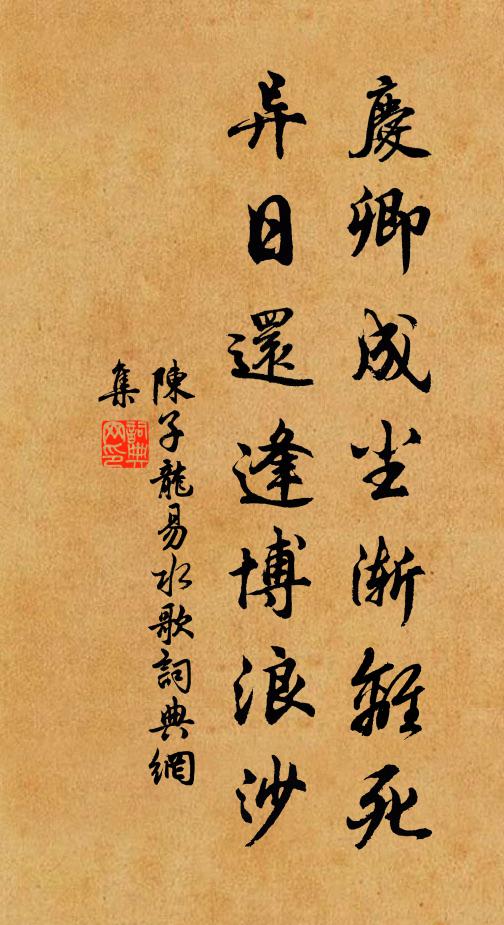 慶卿成尘漸離死
异日還逢博浪沙
陳子龍易水歌詞典網
集
詞典網印